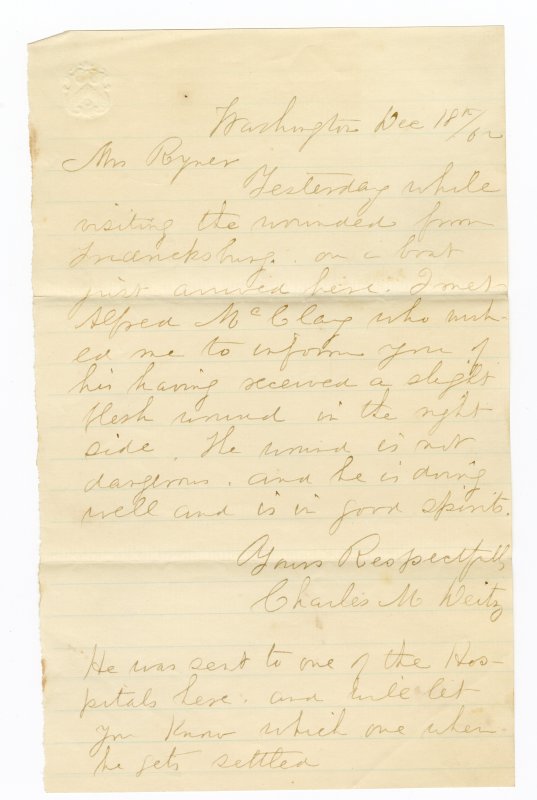 Washington Dec 18th/62
Mrs Ryner
Yesterday while
visiting the wounded from
Fredricksburg. on a boat
just arrived here. I met
Alfred McClay who wish-
ed me to inform you of
his having received a slight
flesh wound in the right
side. He wound is not
dangerous. and he is doing
well and is in good spirits.
Yours Respectfully
Charles M Deitz
He was sent to one of the Hos-
pitals here. and will let
you Know which one when
he gets settled